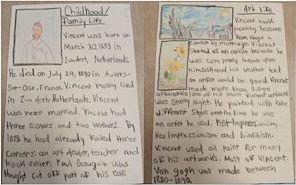 Childhood/
Family Life
Vincent was born on
March 30, 1853 in
Zundert, Netherlands.
He died on July 29, 1890 in Auvers-
Sur-Oise, France. Vincent mostly lived
in Zundert, Netherlands. Vincent
was never married. Vincent had
three sisters and two brothers. By
1878 he had already failed three
careers: an art dealer, teacher and
book seller. Paul Gauguin was
thought cut off part of his ear
Art Life
Vincent took
painting lessons
from
by Vincent
started as an artist because he
was
himself and his brother told
an artist would be good. Vincent
made more than 2,000
artworks. One of his most known artworks
was Starry Night. He painted with three
different
are arts he used, Post-Impressionism,
Neo Impressionism and Pointillism.
Vincent used oil paint for many
of his artworks. Most of Vincent
Van Gogh was made between
1880-1890